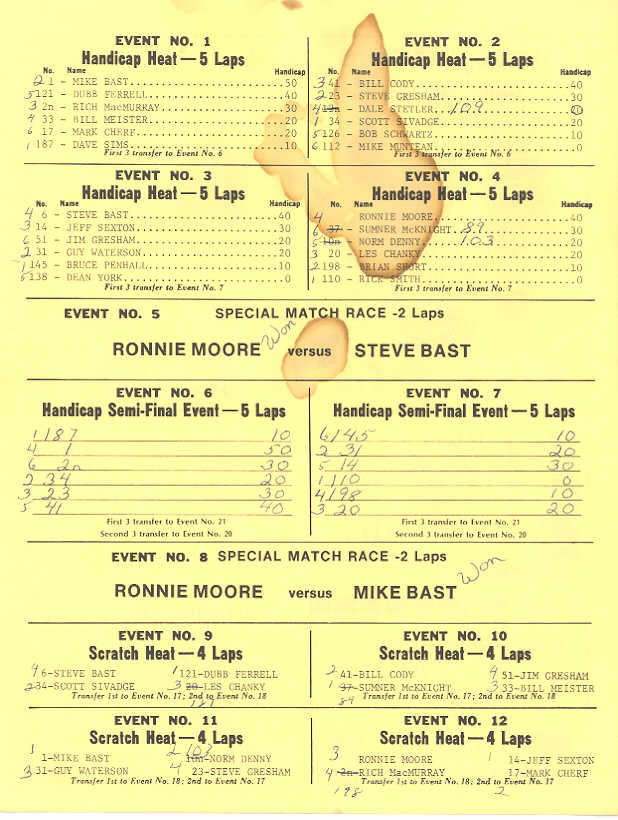 EVENT NO. 1
Handicap Heat — 5 Laps
No. Name Handicap
2 1 - MIKE BAST 50
5 121 - DUBB FERRELL 40
3 2n - RICH MacMURRAY 30
4 33 - BILL MEISTER 20
6 17 - MARK CHERF 20
1 187 - DAVE SIMS 10
First 3 transfer to Event No. 6
EVENT NO. 2
Handicap Heat — 5 Laps
No. Name Handicap
3 41 - BILL CODY 40
2 23 - STEVE GRESHAM 30
4 12n - DALE STETLER 109 20
1 34 - SCOTT SIVADGE 20
5 126 - BOB SCHWARTZ 10
6 112 - MIKE MUNTEAN 0
First 3 transfer to Event No. 6
EVENT NO. 3
Handicap Heat — 5 Laps
No. Name Handicap
4 6 - STEVE BAST 40
3 14 - JEFF SEXTON 30
6 51 - JIM GRESHAM 20
2 31 - GUY WATERSON 20
1 145 - BRUCE PENHALL 10
5 138 - DEAN YORK 0
First 3 transfer to Event No. 7
EVENT NO. 4
Handicap Heat — 5 Laps
No. Name Handicap
4 RONNIE MOORE 40
6 37 - SUMNER McKNIGHT 89 30
5 10n - NORM DENNY 103 20
3 20 - LES CHANKY 20
2 198 - BRIAN SHORT 10
1 110 - RICK SMITH 0
First 3 transfer to Event No. 7
EVENT NO. 5 SPECIAL MATCH RACE -2 Laps
RONNIE MOORE Won versus STEVE BAST
EVENT NO. 6
Handicap Semi-Final Event — 5 Laps
1 187 10
4 1 50
6 2n 30
2 34 20
3 23 30
5 41 40
First 3 transfer to Event No. 21
Second 3 transfer to Event No. 20
EVENT NO. 7
Handicap Semi-Final Event — 5 Laps
6 145 10
2 31 20
5 14 30
1 110 0
4 198 10
3 20 20
First 3 transfer to Event No. 21
Second 3 transfer to Event No. 20
EVENT NO. 8 SPECIAL MATCH RACE -2 Laps
RONNIE MOORE versus MIKE BAST Won
EVENT NO. 9
Scratch Heat — 4 Laps
4 6-STEVE BAST 1 121-DUBB FERRELL
2 34-SCOTT SIVADGE 3 20-LES CHANKY
Transfer 1st to Event No. 17; 2nd to Event No. 18
EVENT NO. 10
Scratch Heat — 4 Laps
2 41-BILL CODY 4 51-JIM GRESHAM
1 37-SUMNER McKNIGHT 3 33-BILL MEISTER
Transfer 1st to Event No. 17; 2nd to Event No. 18
89
EVENT NO. 11
Scratch Heat — 4 Laps
1 1-MIKE BAST 2 103 10n-NORM DENNY
3 31-GUY WATERSON 4 23-STEVE GRESHAM
Transfer 1st to Event No. 18; 2nd to Event No. 17
EVENT NO. 12
Scratch Heat — 4 Laps
3 RONNIE MOORE 1 14-JEFF SEXTON
4 2n-RICH MacMURRAY 17-MARK CHERF
Transfer 1st to Event No. 18; 2nd to Event No. 17
198 2